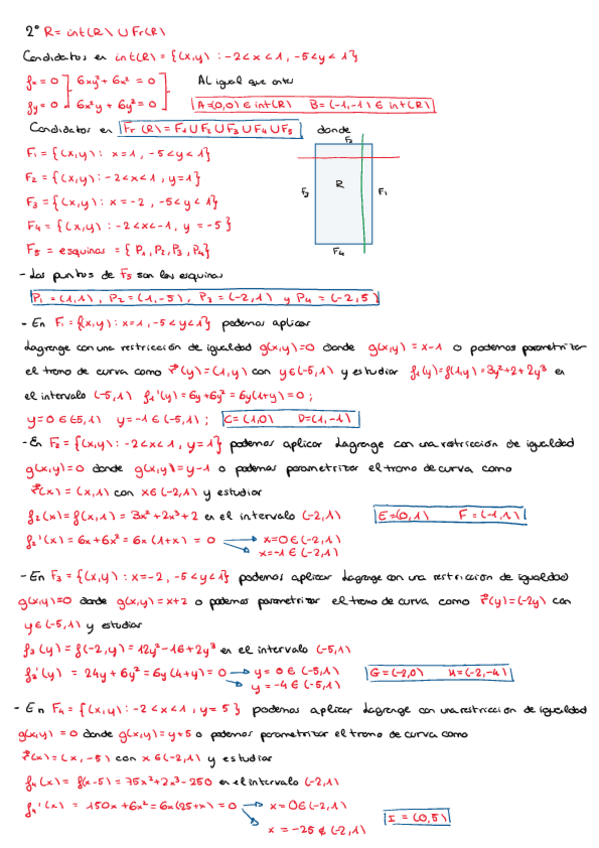 2º R = int(R) ∪ Fr(R)
Candidatos en int(R) = {(x,y) : -2<x<1, -5<y<1}
fx = 0 ] 6xy² + 6x² = 0 ] Al igual que antes
fy = 0 ] 6x²y + 6y² = 0 ] A=(0,0) ∈ int(R) B=(-1,-1) ∈ int(R)
Candidatos en Fr(R) = F1 ∪ F2 ∪ F3 ∪ F4 ∪ F5 donde
F1 = {(x,y) : x=1, -5<y<1}
F2 = {(x,y) : -2<x<1, y=1}
F3 = {(x,y) : x=-2, -5<y<1}
F4 = {(x,y) : -2<x<-1, y=-5}
F5 = esquinas = {P1, P2, P3, P4}
F2
F3 R F1
F4
- Los puntos de F5 son las esquinas
P1 = (1,1), P2 = (1,-5), P3 = (-2,1) y P4 = (-2,5)
- En F1 = {(x,y) : x=1, -5<y<1} podemos aplicar
Lagrange con una restricción de igualdad g(x,y)=0 donde g(x,y) = x-1 o podemos parametrizar
el tramo de curva como r(y) = (1,y) con y∈(-5,1) y estudiar f1(y)=f(1,y)=3y²+2+2y³ en
el intervalo (-5,1) f1'(y) = 6y+6y² = 6y(1+y) = 0 ;
y=0 ∈ (-5,1) y=-1 ∈ (-5,1) ; C=(1,0) D=(1,-1)
- En F2 = {(x,y) : -2<x<1, y=1} podemos aplicar Lagrange con una restricción de igualdad
g(x,y)=0 donde g(x,y)=y-1 o podemos parametrizar el tramo de curva como
r(x) = (x,1) con x∈(-2,1) y estudiar
f2(x)=f(x,1) = 3x²+2x³+2 en el intervalo (-2,1) E=(0,1) F=(-1,1)
f2'(x) = 6x+6x² = 6x(1+x) = 0 → x=0∈(-2,1)
→ x=-1∈(-2,1)
- En F3 = {(x,y) : x=-2, -5<y<1} podemos aplicar Lagrange con una restricción de igualdad
g(x,y)=0 donde g(x,y)=x+2 o podemos parametrizar el tramo de curva como r(y)=(-2,y) con
y∈(-5,1) y estudiar
f3(y) = f(-2,y) = 12y²-16+2y³ en el intervalo (-5,1)
f3'(y) = 24y+6y² = 6y(4+y) = 0 → y=0∈(-5,1) G=(-2,0) H=(-2,-4)
→ y=-4∈(-5,1)
- En F4 = {(x,y) : -2<x<1, y=5} podemos aplicar Lagrange con una restricción de igualdad
g(x,y)=0 donde g(x,y)=y+5 o podemos parametrizar el tramo de curva como
r(x) = (x,-5) con x∈(-2,1) y estudiar
f4(x) = f(x-5) = 75x²+2x³-250 en el intervalo (-2,1)
f4'(x) = 150x+6x² = 6x(25+x) = 0 → x=0∈(-2,1)
→ x=-25∉(-2,1) I=(0,5)